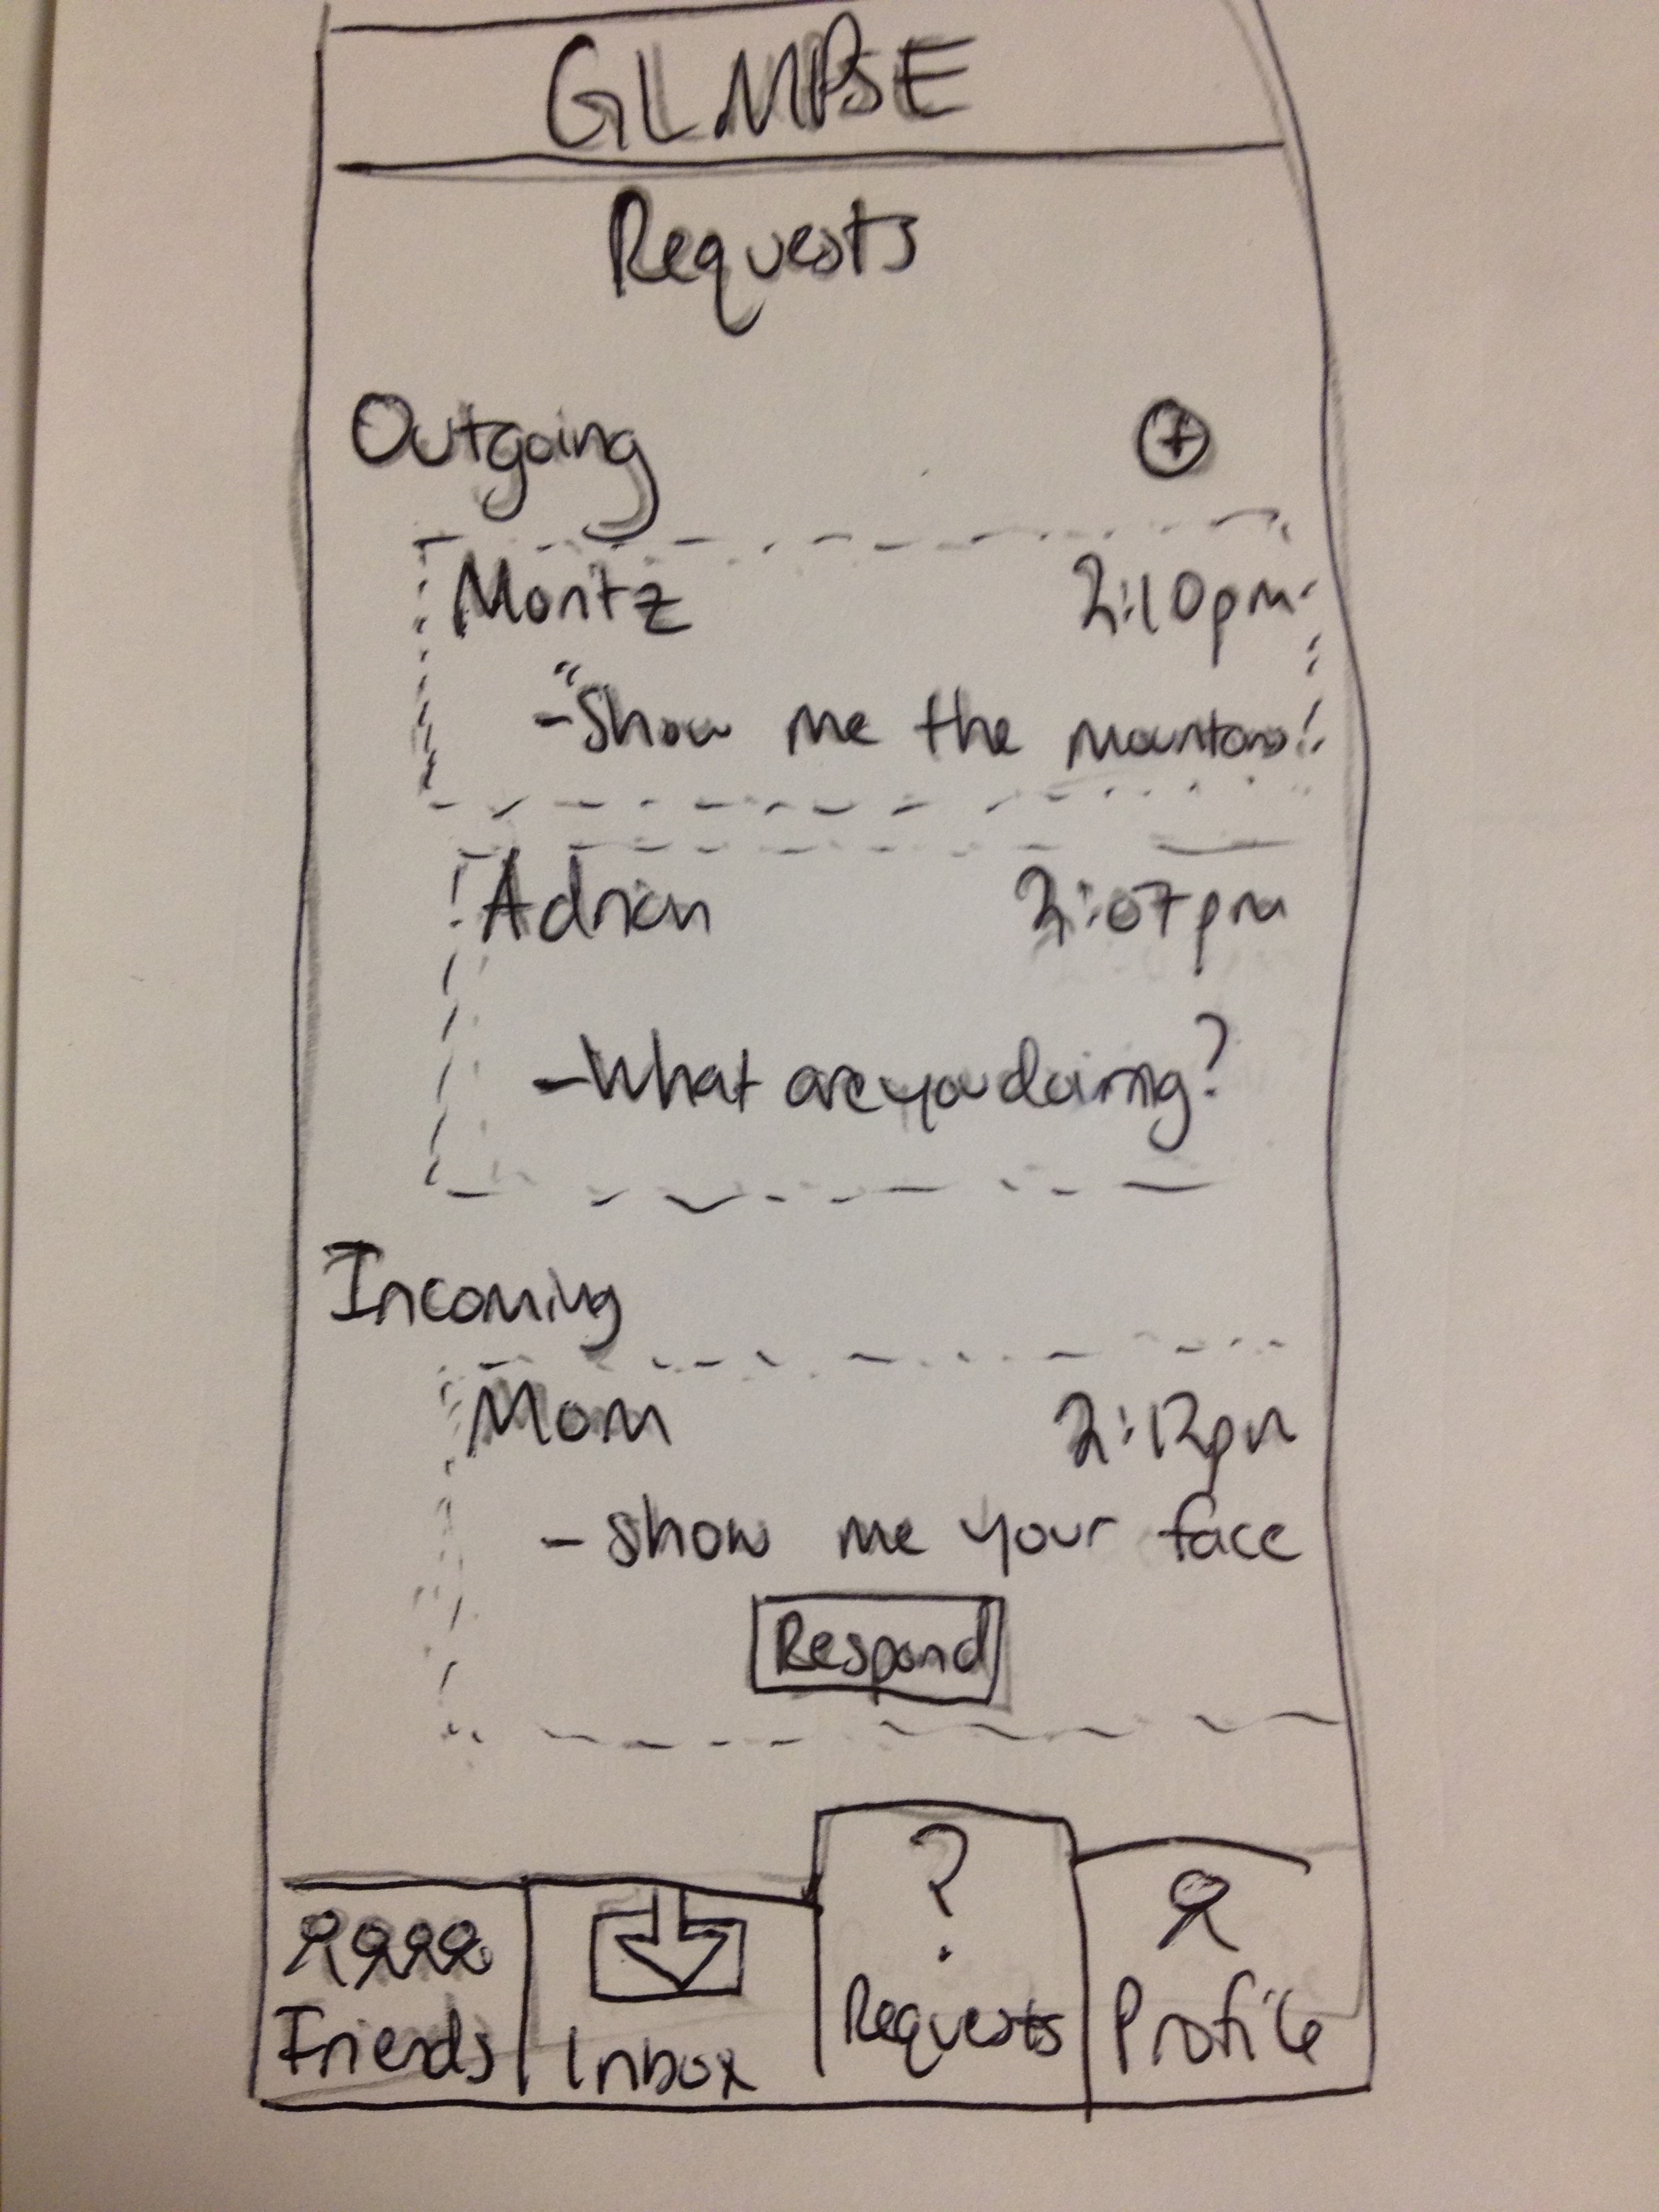 GLMPSE
Requests
Outgoing +
Moritz 2:10pm
-"Show me the mountains!
Adrian 2:07pm
-What are you doing?
Incoming
Mom 2:12pm
- show me your face
Respond
?
Friends Inbox Requests Profile